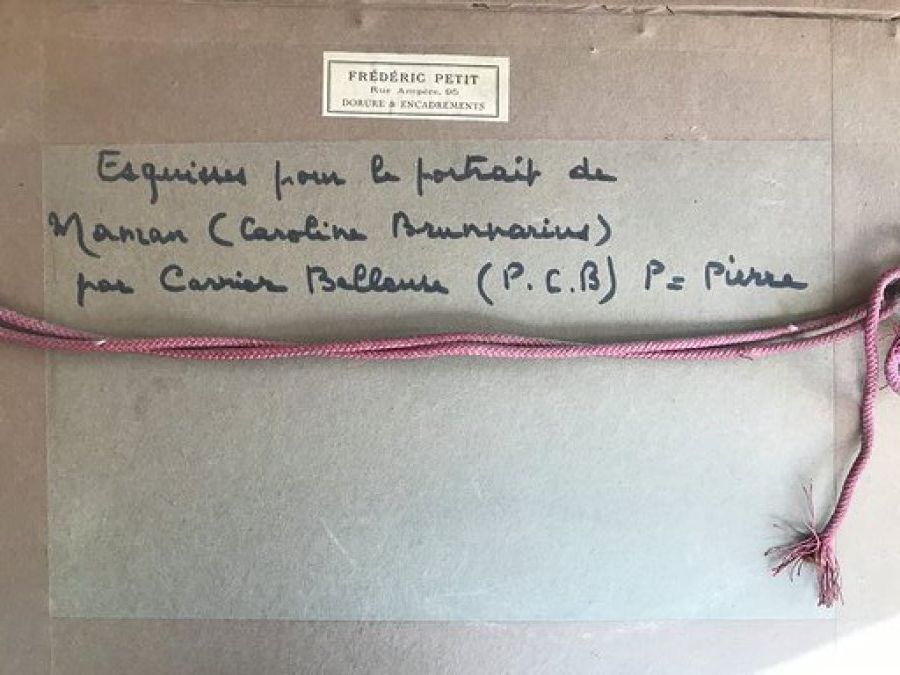 FRÉDÉRIC PETIT
Rue Ampère, 95
DORURE & ENCADREMENTS
Esquisses pour le portrait de
Maman (Caroline Brunnarius)
par Carrier Belleuse (P.C.B) P = Pierre